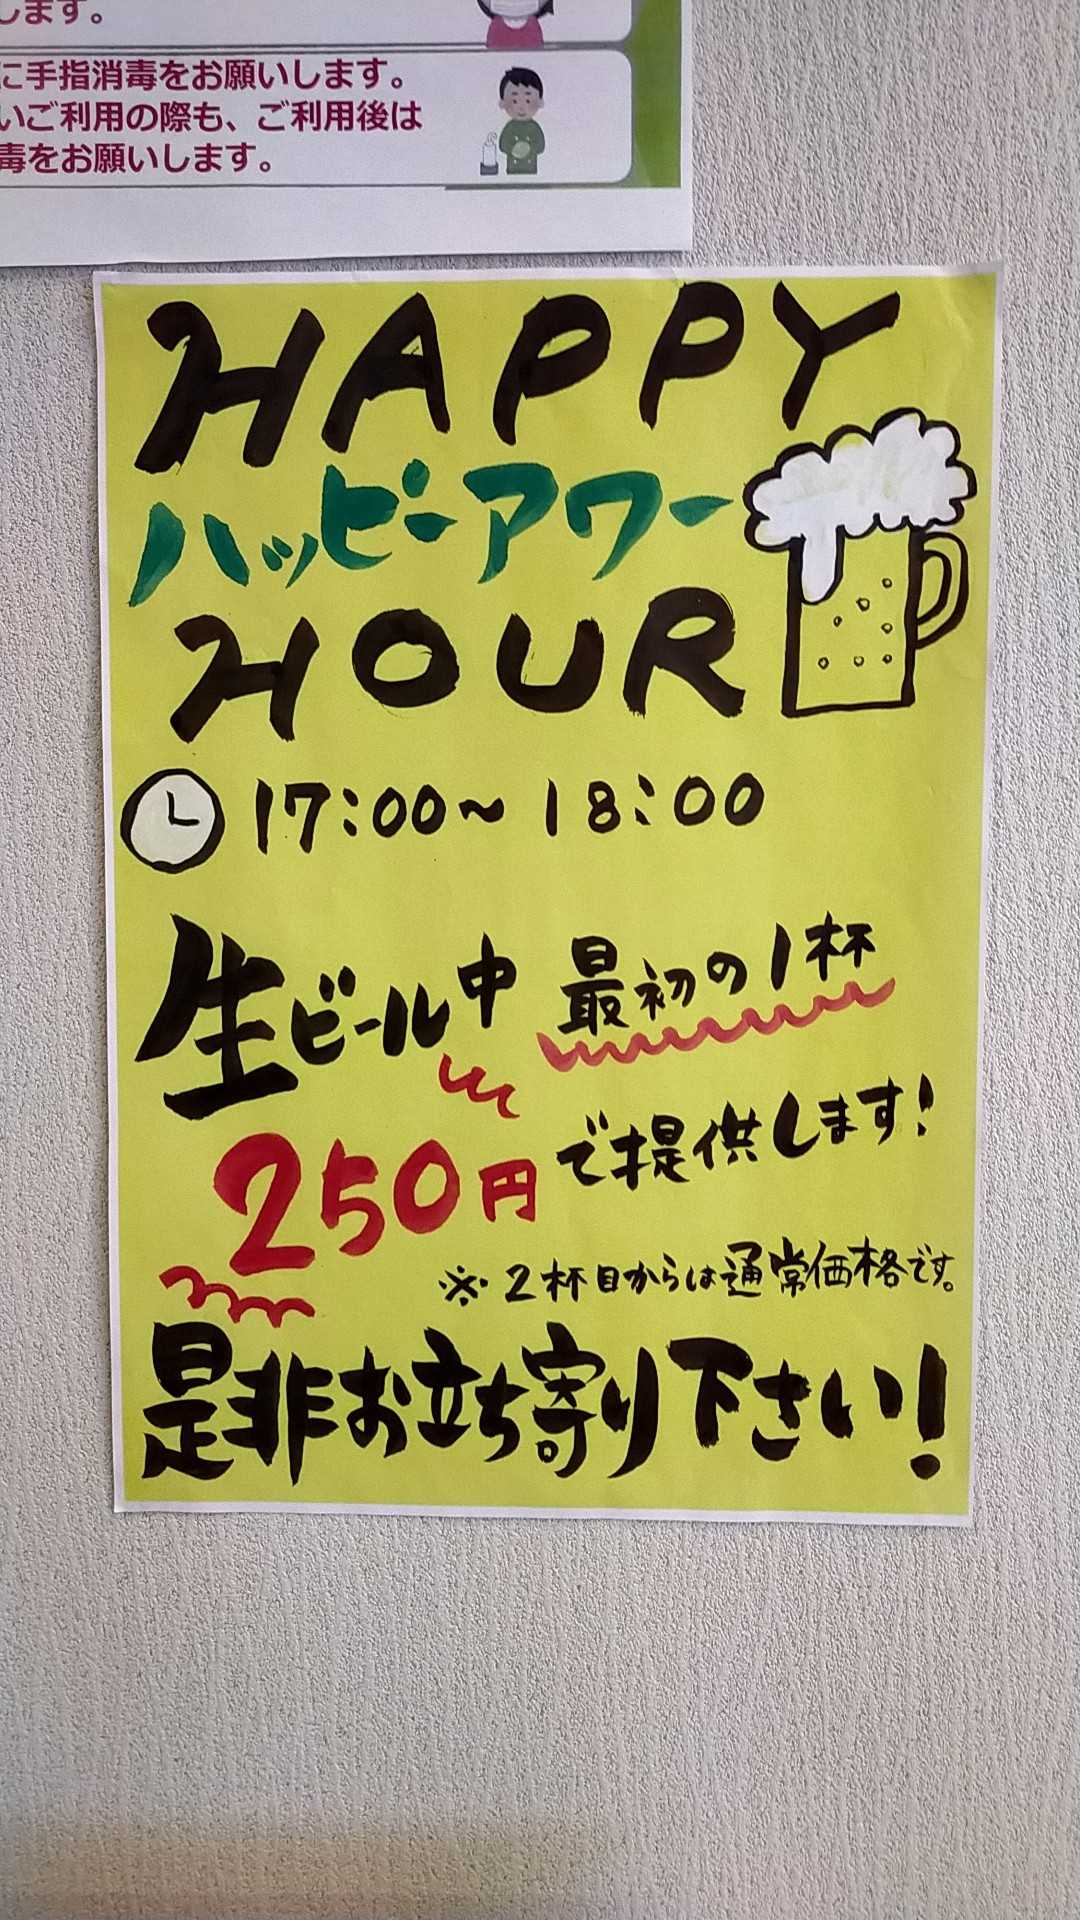 します。
に手指消毒をお願いします。
いご利用の際も、ご利用後は
毒をお願いします。
HAPPY
ハッピーアワー
HOUR
17:00〜18:00
生ビール中 最初の1杯
250円 で提供します!
※2杯目からは通常価格です。
是非お立ち寄り下さい!